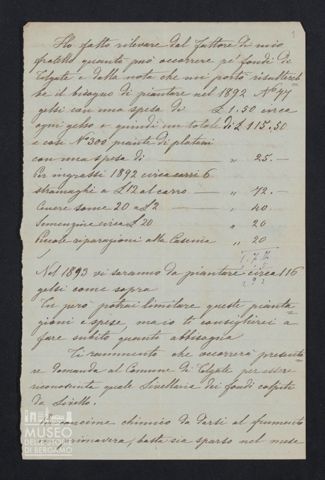 Ho fatto rilevare dal fattore di mio
fratello quanto può occorrere pei fondi di
Telgate e dalla nota che mi portò risultereb
be il bisogno di piantare nel 1892 No 77
gelsi con una spesa di £ 1.50 circa
ogni gelso e quindi un totale di £ 115.50
e così No 300 piante di platani
con una spesa di " 25. —
Per ingrassi 1892 circa carri 6
stramaglie a £ 12 al carro " 72. —
Cenere some 20 a £ 2 " 40
Semenzine circa £ 20 " 20
Piccole riparazioni alla Cascina " 20
Nel 1893 vi saranno da piantare circa 116
gelsi come sopra
Tu però potrai limitare queste pianta-
gioni e spese ma io ti consiglierei a
fare subito quanto abbisogna
Ti rammento che occorrerà presenta-
re domanda al Comune di Telgate per essere
riconosciuta quale livellaria dei fondi colpiti
da livello.
Il concime chimico da darsi al frumento
in primavera, basta sia sparso nel mese
MUSEO
DELLE STORIE
DI BERGAMO